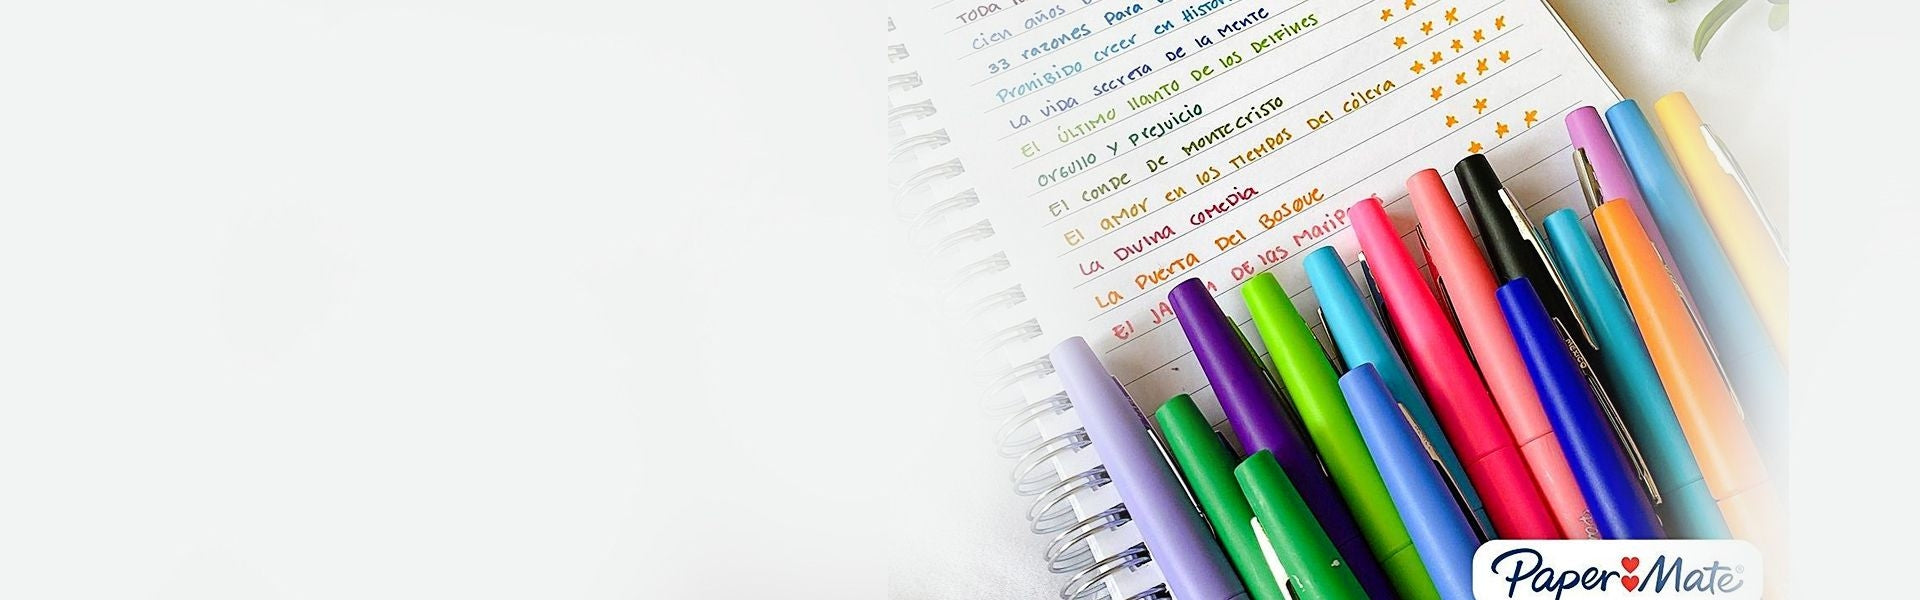 TODA
cien años
33 razones para
Prohibido creer en Histori
La vida secreta de la mente
El último llanto de los delfines
Orgullo y prejuicio
El conde de montecristo
El amor en los tiempos del cólera
La divina comedia
La puerta del bosque
El de las
MEXICO
Paper Mate®